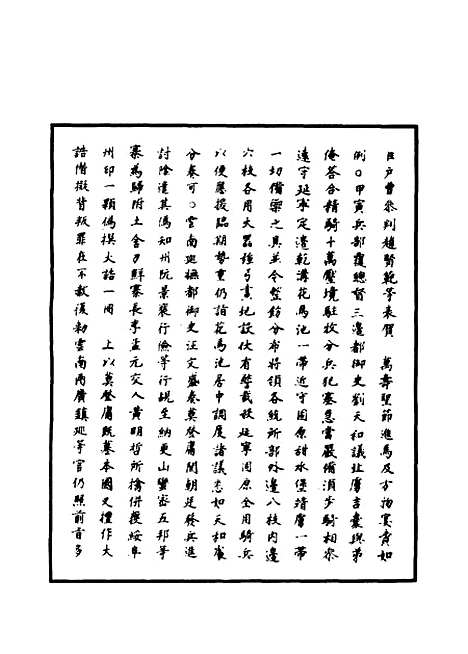 臣户曹參判趙賢範等表賀　萬壽聖節進馬及方物宴賚如
例○甲寅兵部覆總督三邊都御史劉天和議北虜吉囊與弟
俺荅合精騎十萬壓境駐牧分兵犯塞急當嚴備湏步騎相
遠守延寧定邊乾溝花馬池一帶近守固原甜水堡靖虜一帶
一切備禦之具并令整飭分布將領各統所部外邊八枝内邊
六枝各用火器種弓畫地設伏有警截殺延寧固原全用騎兵
以便應援臨期勢重仍請花馬池居中調度諸議悉如天和處
分奏可○雲南巡撫都御史汪文盛奏莫登庸聞朝廷發兵進
討陰遣其偽知州阮景裹行儉等行覘至納更山蠻密五邦等
寨為歸附土舍刀鮮寨長李孟元交人黄明哲所擒併獲綏阜
州印一顆偽撰大誥一冊　上以莫登庸既篡本國又擅作大
誥僭擬背叛罪在不赦後勑雲南兩廣鎮廵等官仍照前旨多